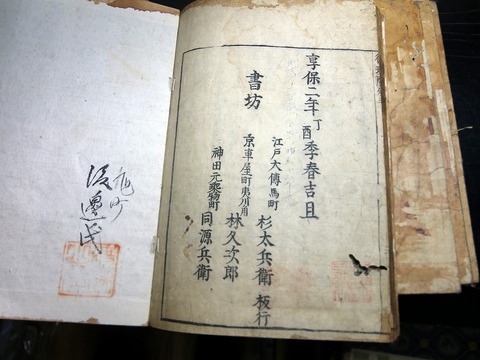 享保二年丁酉季春吉旦
書坊
江戸大傳馬町
杉太兵衛 板行
京車屋町夷川角
林久次郎
神田元乘物町
同源兵衛
渡邊氏